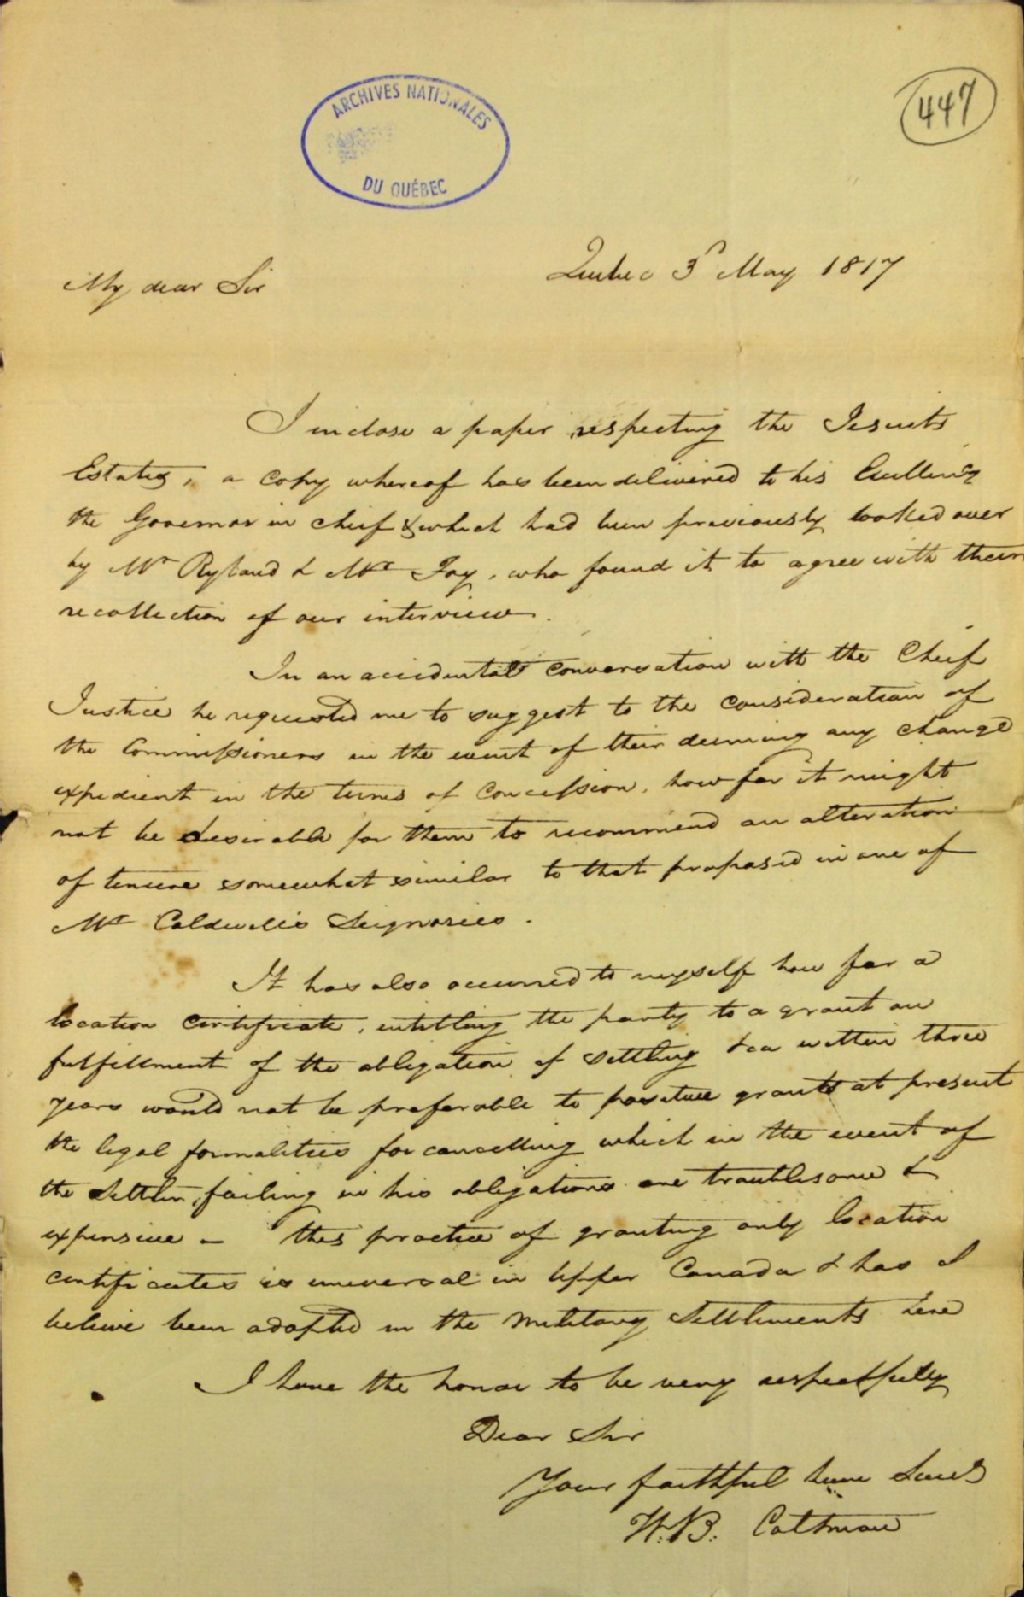 447
ARCHIVES NATIONALES
DU QUÉBEC
Quebec 3d May 1817
My dear Sir
I inclose a paper respecting the Jesuits
Estates, a copy whereof has been delivered to his Excellency
the Governor in Cheif & which had been previously looked over
by Mr Ryland & Mr Foy, who found it to agree with their
recollection of our interview.
In an accidental conversation with the Cheif
Justice he requested me to suggest to the consideration of
the Commissioners in the event of their deeming any change
expedient in the terms of Concession, how far it might
not be desirable for them to recommend an alteration
of tenure somewhat similar to that proposed in one of
Mr Caldwells Seignories.
It has also occurred to myself how far a
location certificate, intitling the party to a grant on
fulfillment of the obligation of settling &ca within three
years would not be preferable to positive grants at present
the legal formalities for cancelling which in the event of
the Settler failing in his obligations are troublesome &
expensive - this practice of granting only location
certificates is universal in Upper Canada & has I
believe been adopted in the Military Settlements here
I have the honor to be very respectfully
Dear Sir
Your faithful hum Servt
W. B. Coltman